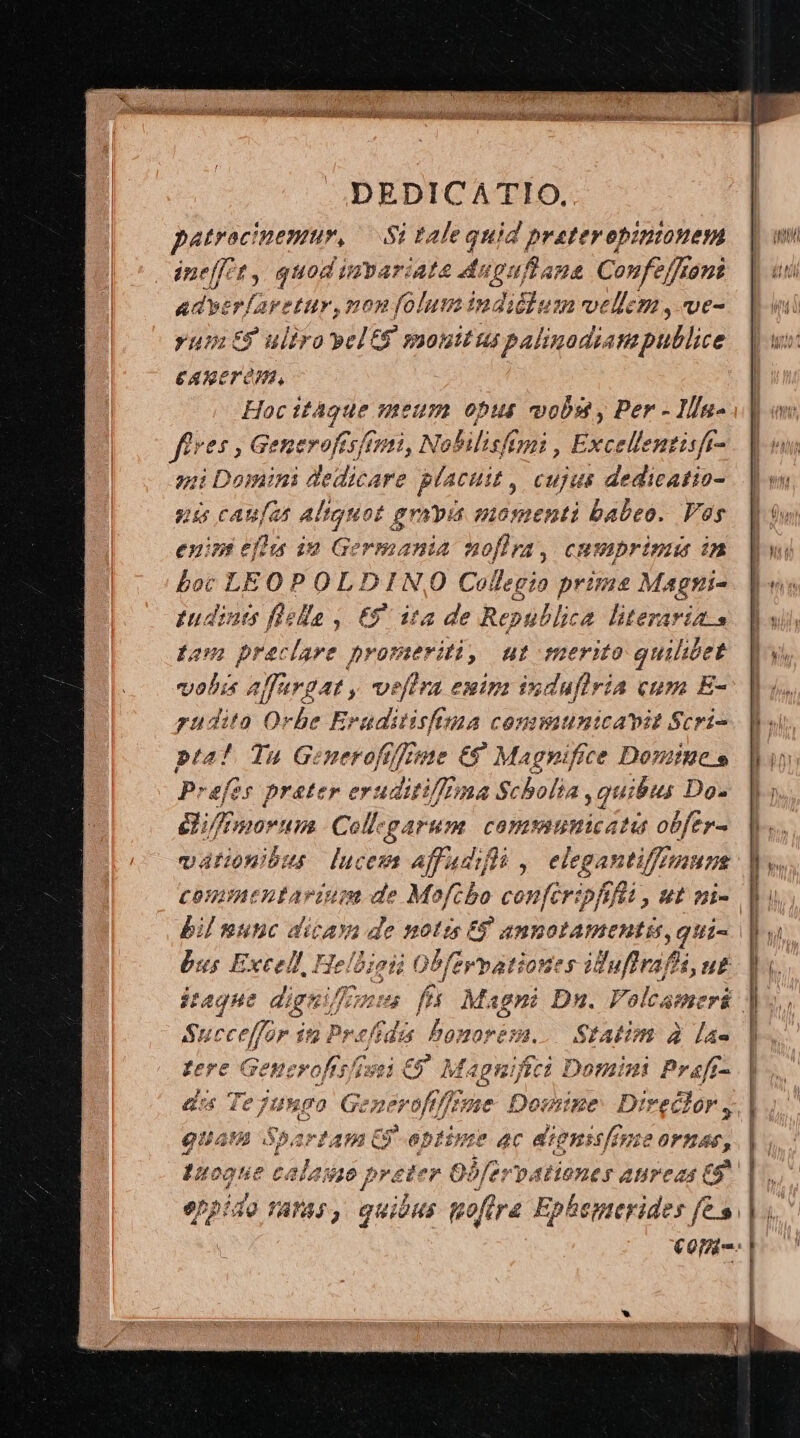 DEDICATIO.
patrocinemur, Si tale quid præter opinionem
ineſſet, quod invariatæ Auguſtanæ Confeſſioni
adverſaretur, non ſolum indictum vellem, ve-
rum & ultro vel & monitus palinodiam publice
canerem.
Hoc itaque meum opus vobis, Per-Illu-
ſtres, Generoſisſimi, Nobilisſimi, Excellentisſi-
mi Domini dedicare placuit, cujus dedicatio-
nis cauſas aliquot gravis momenti habeo. Vos
enim eſtis in Germania noſtra, cumprimis in
hoc LEOPOLDINO Collegio primæ Magni-
tudinis ſtellæ, & ita de Republica literaria
tam præclare promeriti, ut merito quilibet
vobis aſſurgat, veſtra enim induſtria cum E-
rudito Orbe Eruditisſima communicavit Scri-
pta! Tu Generoſiſſime & Magnifice Domine
Præſes præter eruditiſſima Scholia, quibus Do-
ctiſſimorum Collegarum communicatis obſer-
vationibus lucem affudiſti, elegantiſſimum
commentarium de Moſcho conſcripſiſti, ut ni-
hil nunc dicam de notis & annotamentis, qui-
bus Excell. Helbigii Obſervationes illuſtraſti, ut
itaque digniſſimus ſis Magni Dn. Volcameri
Succeſſor in Præſidis honorem. Statim à la-
tere Generoſisſimi & Magnifici Domini Præſi-
dis Te jungo Generoſiſſime Domine Director,
quam Spartam & optime ac dignisſime ornas,
tuoque calamo præter Obſervationes aureas &
oppido raras, quibus noſtræ Ephemerides ſe
com-